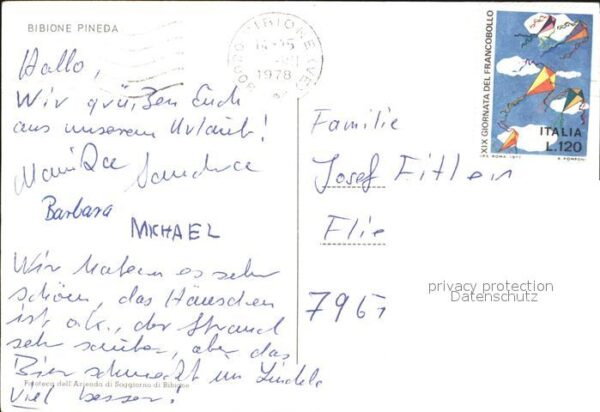 BIBIONE PINEDA
Hallo,
Wir grüßen Euch
aus unserem Urlaub!
Sandra
Barbara
MICHAEL
Wir haben es sehr
schön, das Häuschen
ist o.k., der Strand
sehr sauber, aber das
Bier schmeckt im
viel besser!
Fototeca dell'Azienda di Soggiorno di Bibione
BIBIONE (VE)
14-15
1978
XIX GIORNATA DEL FRANCOBOLLO
ITALIA
L.120
Familie
Josef
796
privacy protection
Datenschutz